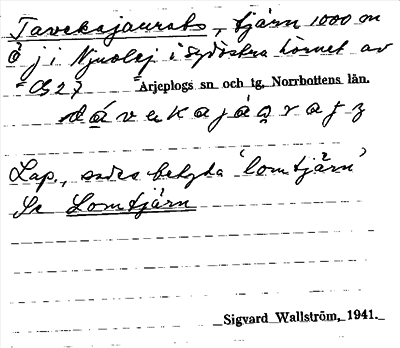 Tavekajaurats, tjärn 1000 m
ö j i Njuolej i sydöstra hörnet av
CS27 Arjeplogs sn och tg, Norrbottens län.
Lap., sades betyda 'lomtjärn'
Se Lomtjärn
Sigvard Wallström, 1941.